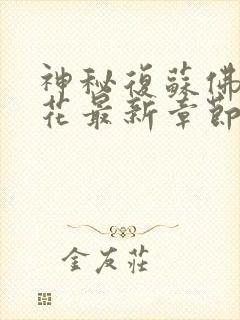 神秘復蘇佛
花最新章節
金友莊